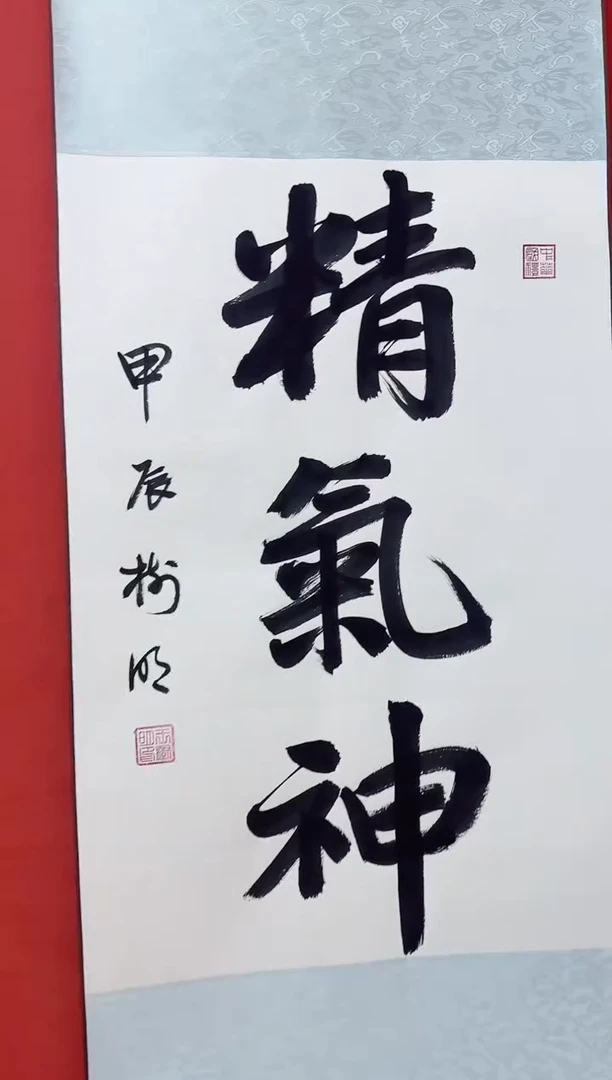 精氣神
甲辰树明